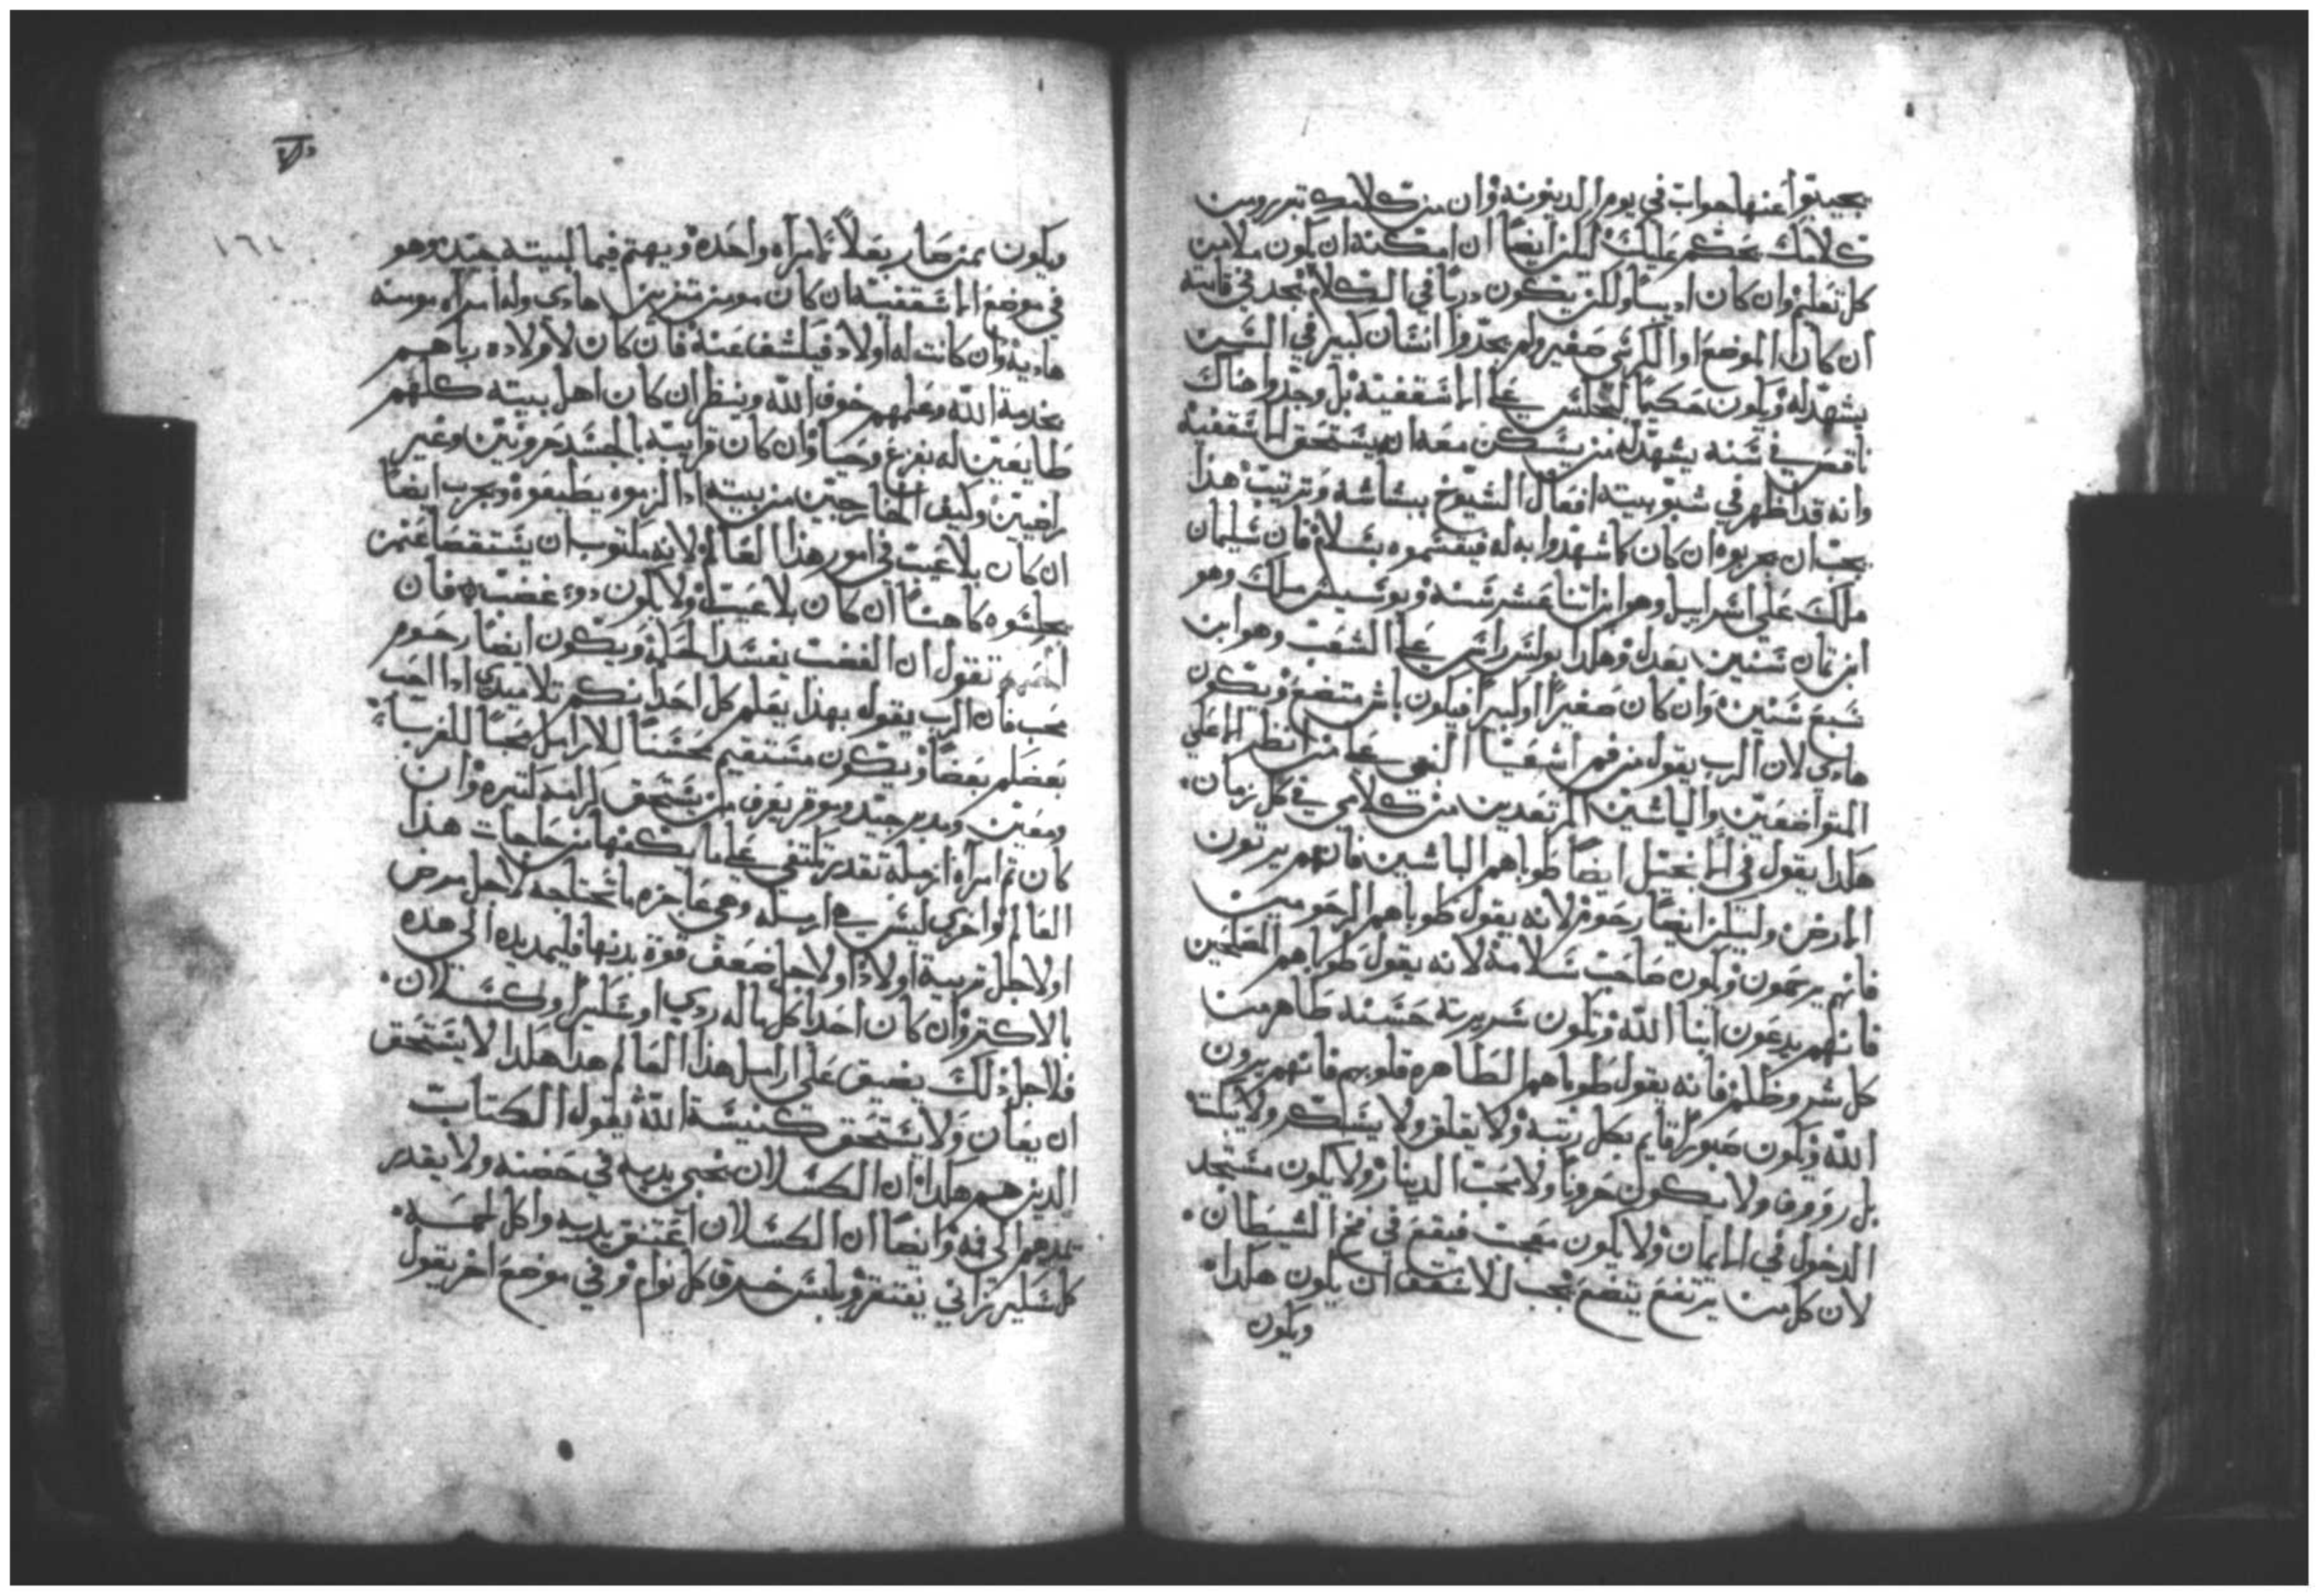 يجيبوا عنها جواب في يوم الدينونه وان من كلامك تبرر ومن
كلامك يحكم عليك ليكن ايضًا ان امكنه ان يكون ملا من
كل تعليم وان كان اديبًا ولكن يكون دربًا في الكلام نجد في قامته
ان كان الموضع او الكرسي صغير ولم يجدوا انسان كبير في السن
يشهد له ويكون حكيمًا ليجلس على الاسقفية بل وجدوا هناك
ناقص في سنه يشهد له من يسكن معه انه يستحق الاسقفية
وانه قد اظهر في شبوبيته افعال الشيوخ ببشاشه وترتيب هذا
يجب ان يجربوه ان كان كما شهدوا به له فيقسموه بسلام فان سليمان
ملك على اسراييل وهو ابن اتنا عشر سنه ويوسيس ملك وهو
ابن تمان سنين بعدل وهكذا يواس راس على الشعب وهو ابن
سبع سنين وان كان صغيرًا او كبيرًا فيكون باش متضع ويكون
هادي لان الرب يقول من فم اشعيا النبي على من انظر الا على
المتواضعين والباشين المرتعدين من كلامي في كل زمان.
هكذا يقول في الانجيل ايضًا طوباهم الباشين فانهم يرتون
الارض وليكن ايضًا رحوم لانه يقول طوباهم الرحومين
فانهم يرحمون ويكون صاحب سلامة لانه يقول طوباهم المصلحين
فانهم يدعون ابنا الله وتكون سريرته حسنه طاهر من
كل شر وظلم فانه يقول طوباهم الطاهره قلوبهم فانهم يرون
الله ويكون صبورًا قايم بكل رتبه ولا يقلق ولا يسكر ولا يلتا
بل رووف ولا يكون حرونًا ولا يحب الدينار ولا يكون مستجد
الدخول في الايمان ولا يكون معجب فيقع في فخ الشيطان.
لان كل من يرتفع يتضع يجب للاسقف ان يكون هكدا.
ويكون
١٦١
ويكون ممن صار بعلاً لامراه واحده ويهتم فيما لبيته جيد وهو
في موضع الاسقفية ان كان مومن متزين هادي وله امراه مومنه
هاديه وان كانت له اولاد فيكشف عنه فان كان لاولاده رباهم
بخدمة الله وعلمهم خوف الله وينظر ان كان اهل بيته كلهم
طايعين له بفزع وحيا وان كان قرابته بالجسد حرونين وغير
راضيين وكيف الخارجين من بيته اذا لزموه يطيعوه ويجرب ايضًا
ان كان بلا عيب في امور هذا العالم لانه مكتوب ان يستقصا عمن
يجلسوه كاهنًا ان كان بلا عيب ولا يكون دو غضب فان
الحكمه تقول ان الغضب يفسد الحكما ويكون ايضًا رحوم
محب فان الرب يقول بهذا يعلم كل احد انكم تلاميدي اذا احب
بعضكم بعضًا ويكون مستقيم محسنًا للارامل محبًا للغربا.
ومعين ومدبر جيد وموقر يعرف من يستحق كرامه كتيره وان
كان تم امراه ارمله تقدر تكتفي على ما يكفها من حاجات هذا
العالم واخرى ليس هي ارمله وهي عاجزه ما تحتاجه لاجل مرض
او لاجل تربية اولاد او لاجل ضعف قوة بدنها فليمد يده الى هده
بالاكتر وان كان احدا كل ماله ردي او سكير او كسلان.
فلاجل ذلك يضيق على ارامل هذا العالم هدا هكدا لا يستحق
ان يعان ولا يستحق كنيسة الله يقول الكتاب
الدين هم هكدا ان الكسلان يخبي يديه في حضنه ولا يقدر
يمدهم الى فيه وايضًا ان الكسلان اعتنق يديه واكل لحمه.
كل سكير زاني يفتقر ويلبس خرق كل نوام وفي موضع اخر يقول